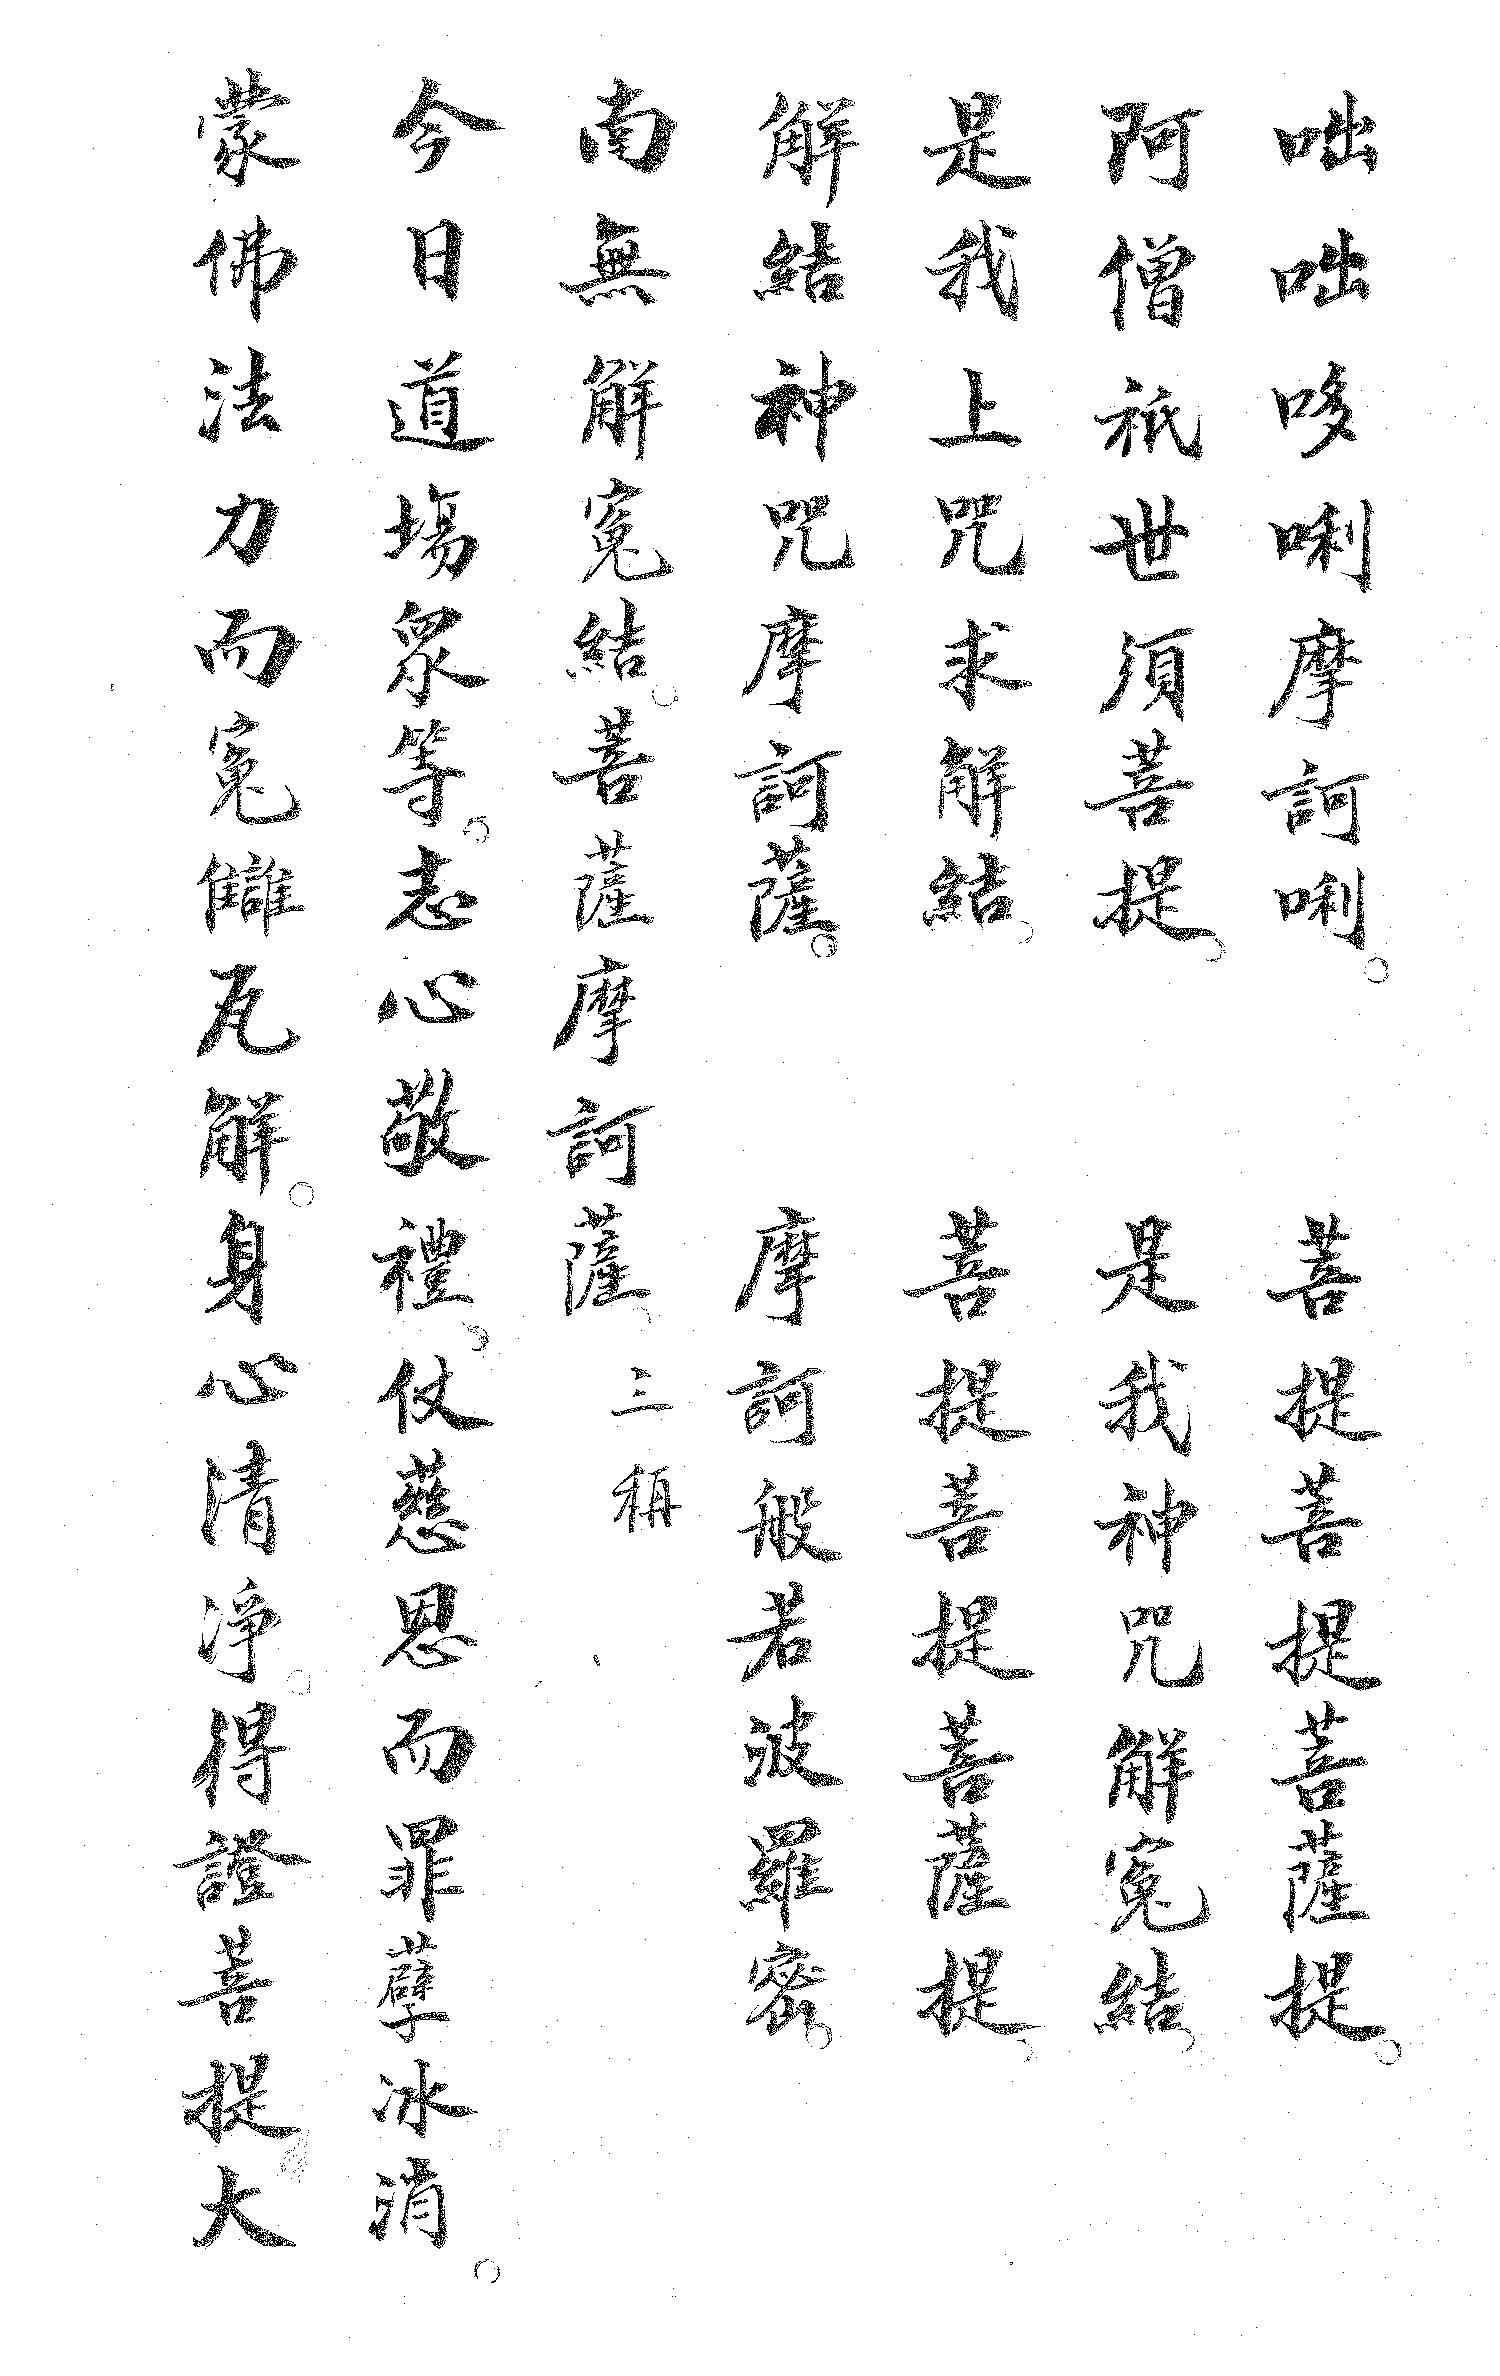 咄咄哆唎摩訶唎。　菩提菩提菩薩提。
阿僧祇世須菩提。　是我神咒解寃結。
是我上咒求解結。　菩提菩提菩薩提。
解結神咒摩訶薩。　摩訶般若波羅密。
南無解寃結。菩薩摩訶薩。三稱
今日道場眾等。志心敬禮。仗慈恩而罪孽冰消。
蒙佛法力而寃讎瓦解。身心清淨。得證菩提大